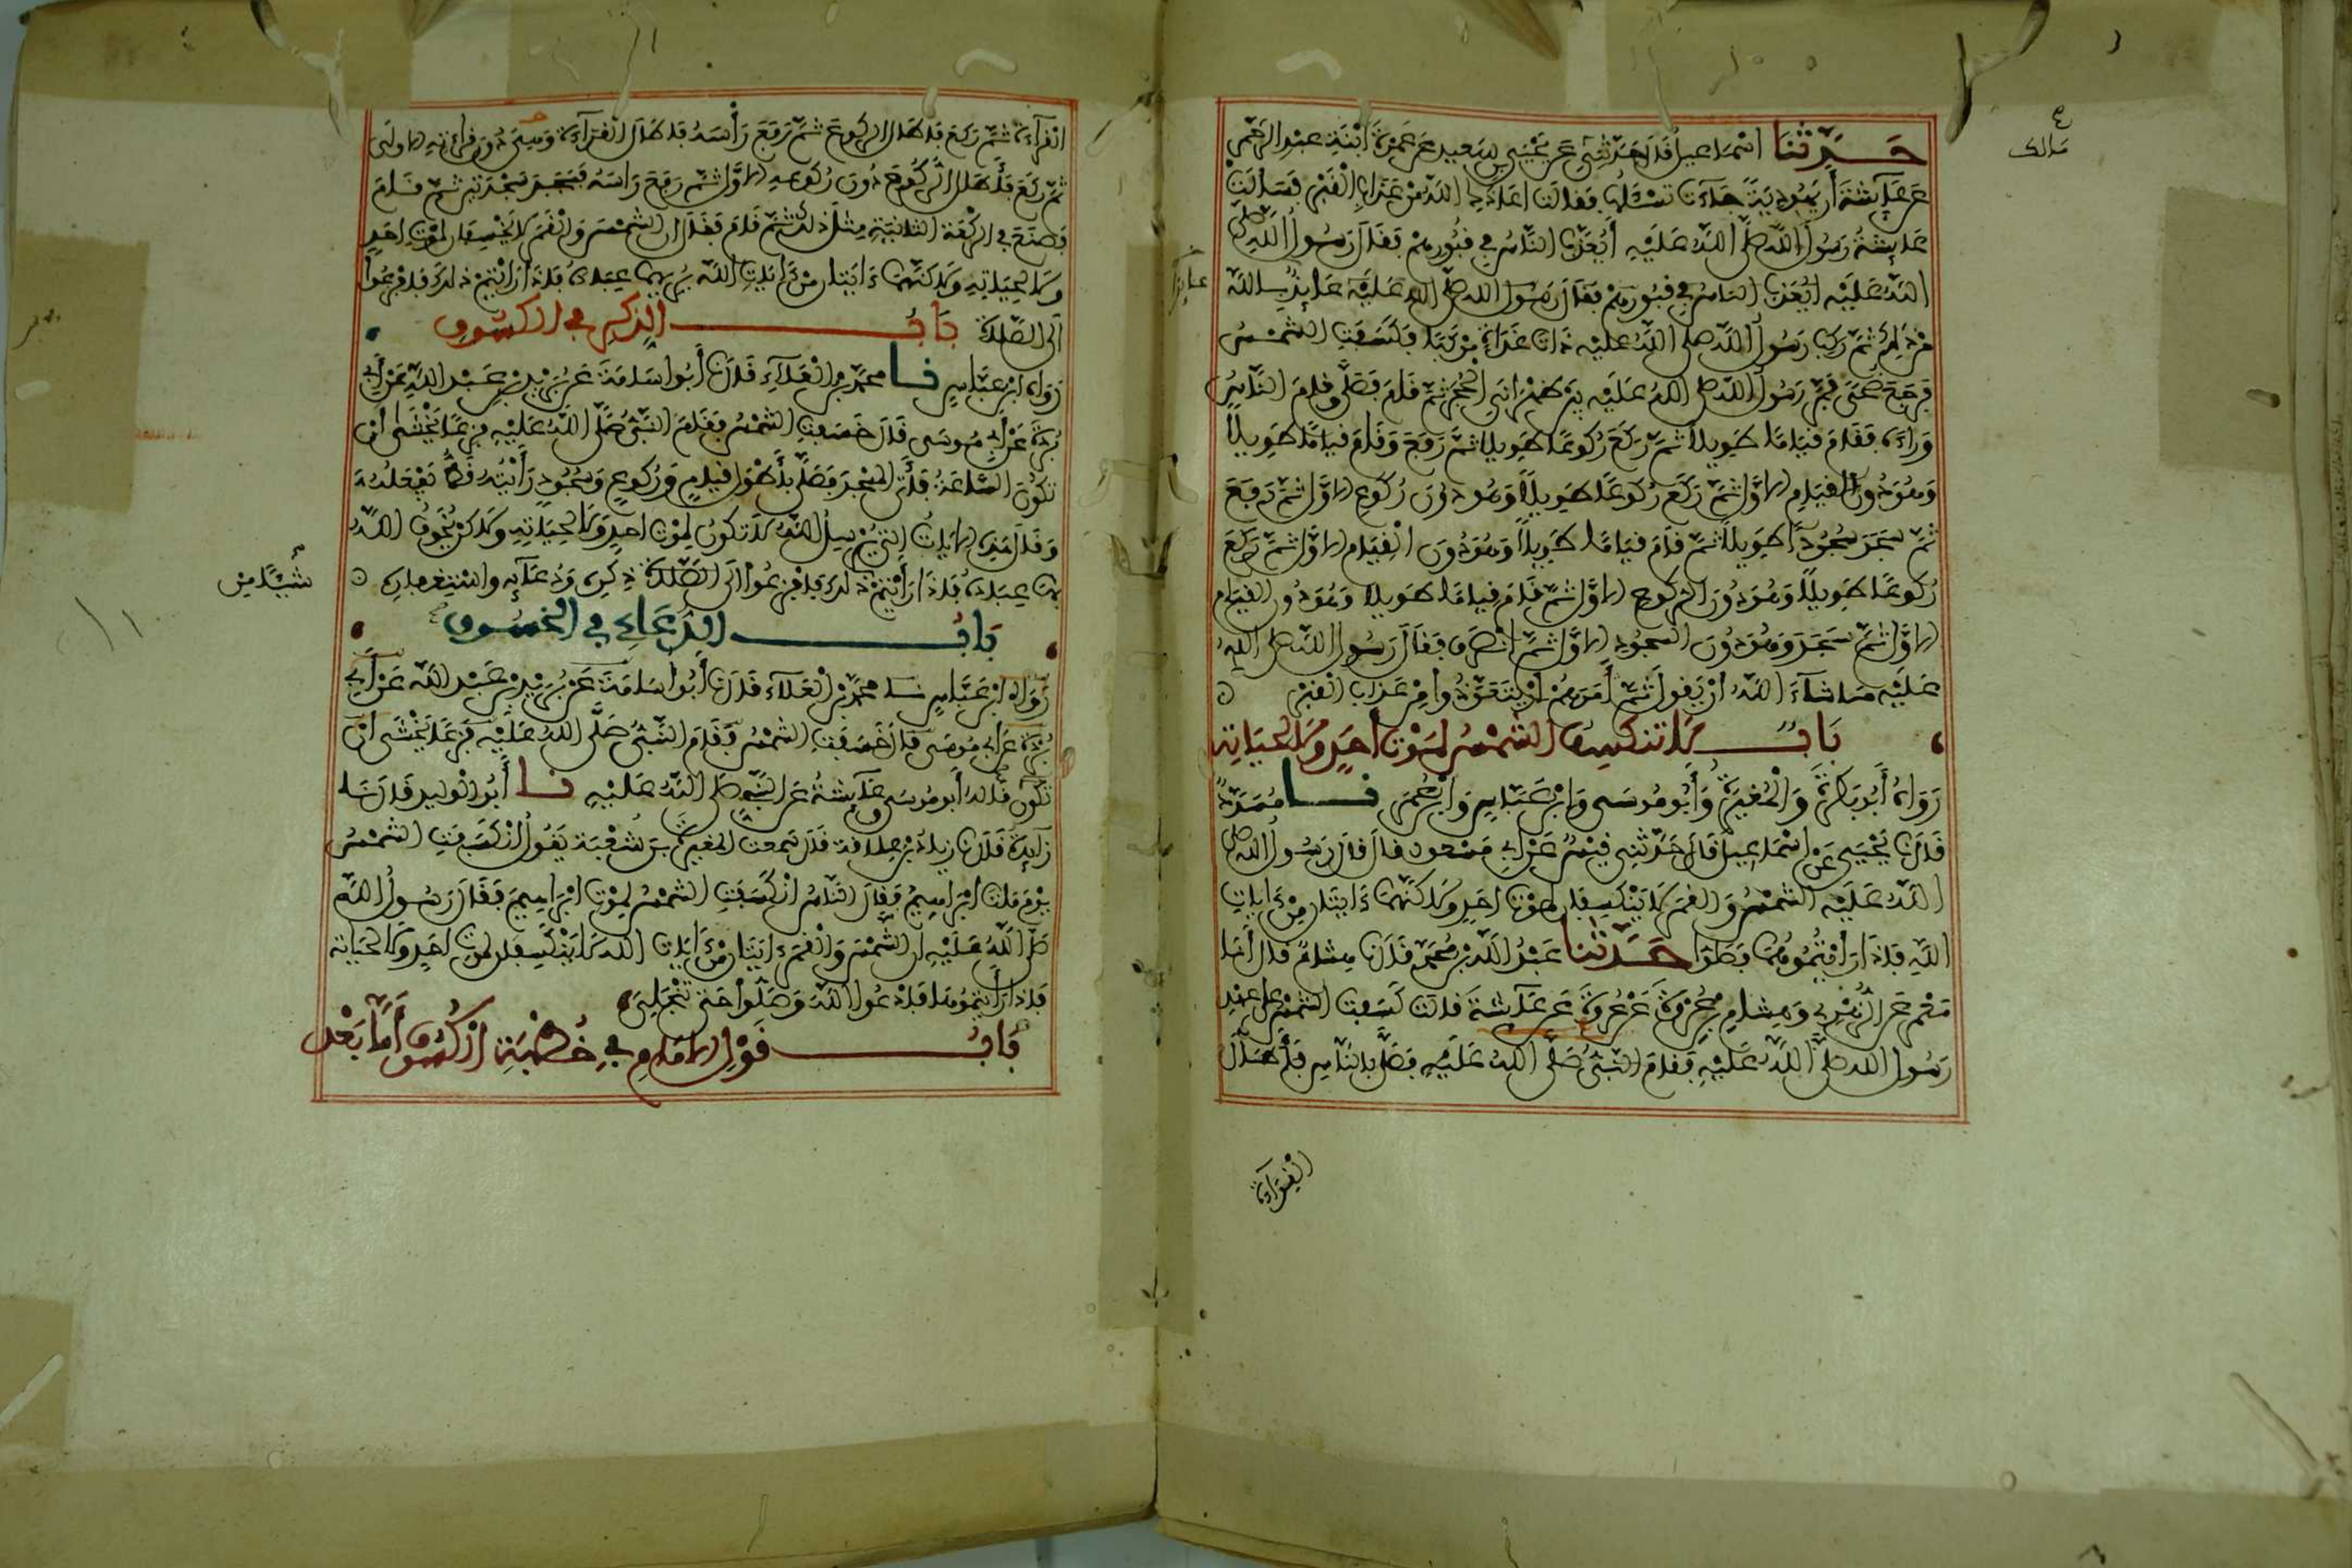 حدثنا اسماعيل قال حدثني عن يحيى بن سعيد عن عمرة ابنة عبد الرحمن
مالك
عن عائشة أن يهودية جاءت تسئلها فقالت اعاذك الله من عذاب القبر فسألت
عائشة رسول الله صلى الله عليه أيعذب الناس في قبورهم فقال رسول الله صلى
الله عليه ايعذب الناس في قبورهم فقال رسول الله صلى الله عليه عايذا بالله
من ذلك ثم ركب رسول الله صلى الله عليه ذات غداة مركبا فكسفت الشمس
فرجع ضحى فمر رسول الله صلى الله عليه بين ظهراني الحجر ثم قام فصلى وقام الناس
وراءه فقام قياما طويلا ثم ركع ركوعا طويلا ثم رفع وقام قياما طويلا
وهو دون القيام الاول ثم ركع ركوعا طويلا وهو دون ركوع الاول ثم رفع
ثم سجد سجودا طويلا ثم قام قياما طويلا وهو دون القيام الاول ثم ركع
ركوعا طويلا وهو دون الركوع الاول ثم قام قياما طويلا وهو دون القيام
الاول ثم سجد وهو دون السجود الاول ثم انصرف فقال رسول الله صلى الله
عليه ما شاء الله ان يقول ثم أمرهم ان يتعوذوا من عذاب القبر
باب لا تنكسف الشمس لموت أحد ولا لحياته
رواه أبو بكرة والمغيرة وأبو موسى وابن عباس وابن عمر نا مسدد
قال نا يحيى عن اسماعيل قال حدثني قيس عن ابي مسعود قال قال رسول الله صلى
الله عليه الشمس والقمر لا ينكسفان لموت احد ولاكنهما ءايتان من ءايات
الله فاذا رأيتموهما فصلوا حدثنا عبد الله بن محمد قال نا هشام قال أنا
معمر عن الزهري وهشام بن عروة عن عروة عن عائشة قالت كسفت الشمس على عهد
رسول الله صلى الله عليه فقام النبي صلى الله عليه فصلى بالناس فأطال
القراءة
القراءة ثم ركع فاطال الركوع ثم رفع رأسه فاطال القراءة وهي دون قراءته الاولى
ثم ركع فأطال الركوع دون ركوعه الاول ثم رفع راسه فسجد سجدتين ثم قام
فصنع في الركعة الثانية مثل ذلك ثم قام فقال ان الشمس والقمر لا يخسفان لموت احد
ولا لحياته ولاكنهما ءايتان من ءايات الله يريهما عباده فاذا رأيتم ذلك فافزعوا
الى الصلاة باب الذكر في الكسوف
رواه ابن عباس نا محمد بن العلاء قال نا أبو اسامة عن بريد بن عبد الله عن أبي
بردة عن أبي موسى قال خسفت الشمس فقام النبي صلى الله عليه فزعا يخشى أن
تكون الساعة فأتى المسجد فصلى بأطول قيام وركوع وسجود رأيته قط يفعله
وقال هذه الايات التي يرسل الله لا تكون لموت احد ولا لحياته ولاكن يخوف الله
بها عباده فاذا رأيتم شيئا من ذلك فافزعوا الى الصلاة ذكره ودعائه واستغفاره
باب الدعاء في الخسوف
رواه ابن عباس نا محمد بن العلاء قال نا أبو اسامة عن بريد بن عبد الله عن أبي
بردة عن ابي موسى قال خسفت الشمس فقام النبي صلى الله عليه فزعا يخشى ان
تكون قاله أبو موسى وعائشة عن النبي صلى الله عليه نا أبو الوليد قال نا
زايدة قال نا زياد بن علاقة قال سمعت المغيرة بن شعبة يقول انكسفت الشمس
يوم مات ابراهيم فقال الناس انكسفت الشمس لموت ابراهيم فقال رسول الله
صلى الله عليه ان الشمس والقمر ءايتان من ءايات الله لا ينكسفان لموت احد ولا لحياته
فاذا رأيتموهما فادعوا الله وصلوا حتى تنجلي
باب قول الامام في خطبة الكسوف أما بعد